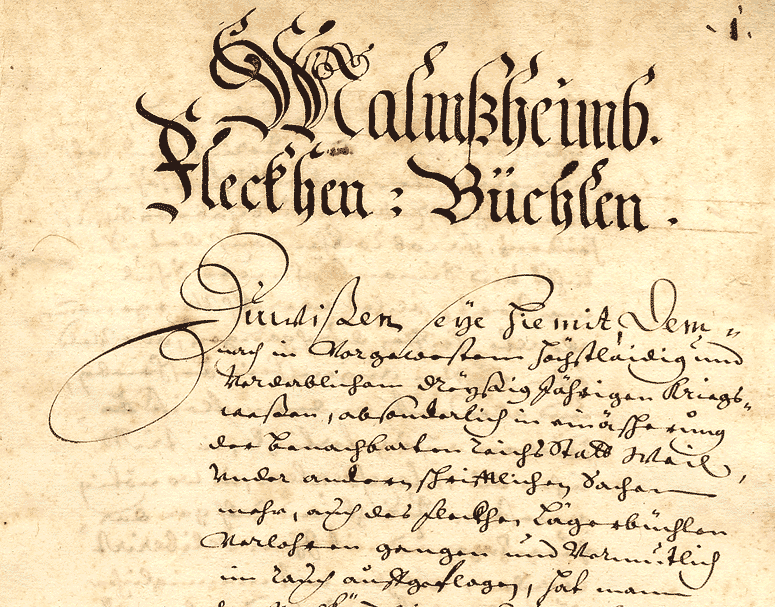 1.
Malmßheimb.
Fleckhen : Büchlen.
Zuwißen seye hiemit, Dem=
nach in Vorgewestem höchstläidig und
Verderblichem dreyßig Jährigen Kriegs=
weßen, absonderlich in einäscherung
der benachbarten Reichs Statt Weil,
vnder andern schrifftlichen Sachen
mehr, auch des fleckhen Lägerbüchlen
Verlohren gangen und Vermutlich
im rauch auffgeflogen, hat mann